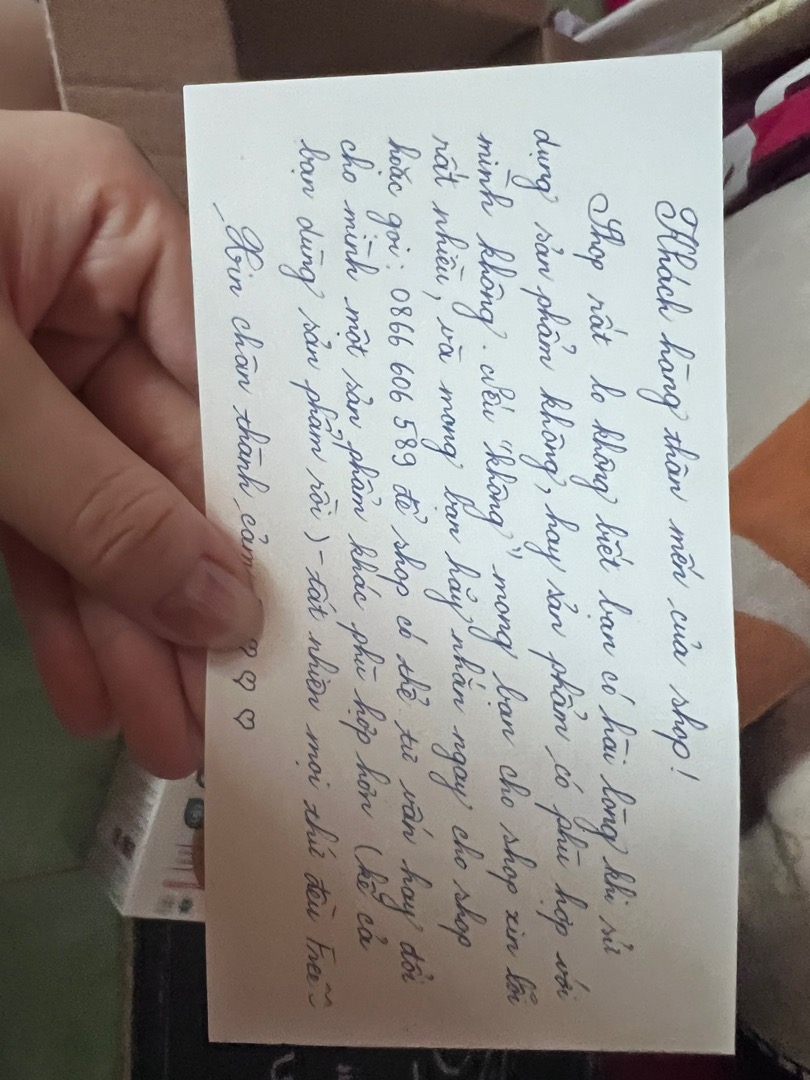 Khách hàng thân mến của shop!
Shop rất lo không biết bạn có hài lòng khi sử
dụng sản phẩm không, hay sản phẩm có phù hợp với
mình không. Nếu "không" mong bạn cho shop xin lỗi
rất nhiều, và mong bạn hãy nhắn ngay cho shop
hoặc gọi: 0866 606 589 để shop có thể tư vấn hay đổi
cho mình một sản phẩm khác phù hợp hơn (kể cả
bạn dùng sản phẩm rồi) - tất nhiên mọi thứ đều Free~
Xin chân thành cảm ♡ ♡ ♡